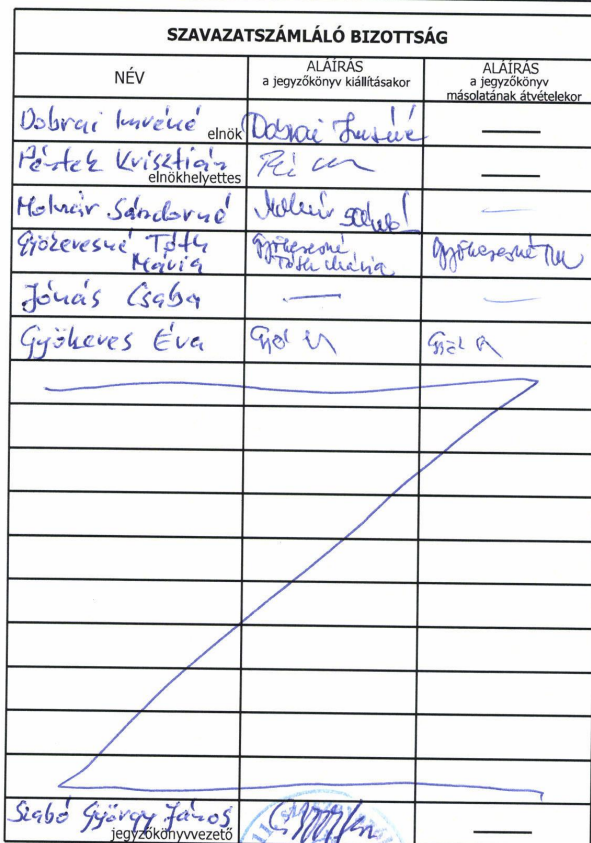 SZAVAZATSZÁMLÁLÓ BIZOTTSÁG
NÉV
ALÁÍRÁS
a jegyzőkönyv kiállításakor
ALÁÍRÁS
a jegyzőkönyv
másolatának átvételekor
Dobrai Imréné elnök Dobrai Imréné
Krisztián
elnökhelyettes
Molnár Sándorné Molnár
Tóth Gyökeresné
Mária Tóth Mária
Jónás Csaba
Gyökeres Éva
Szabó György János
jegyzőkönyvvezető